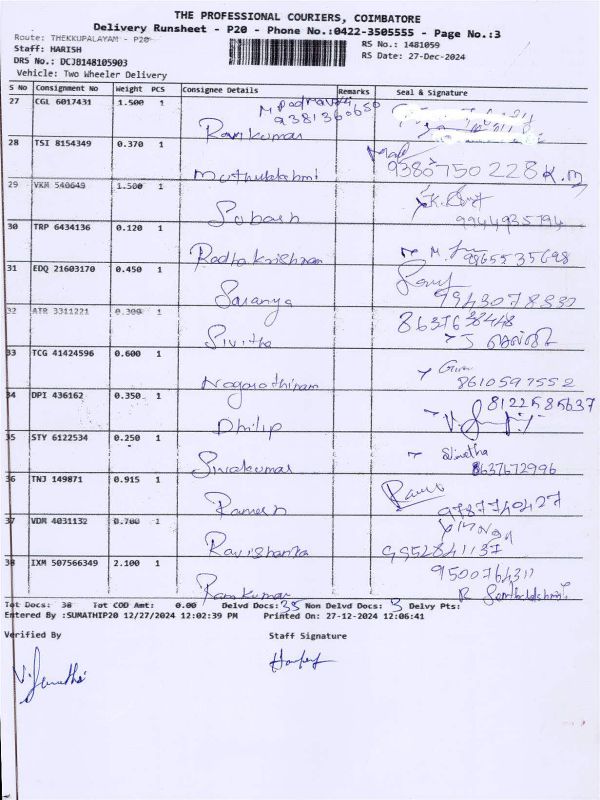 THE PROFESSIONAL COURIERS, COIMBATORE
Delivery Runsheet - P20 - Phone No.:0422-3505555 - Page No.:3
Route: THEKKUPALAYAM - P20
RS No.: 1481059
Staff: HARISH
RS Date: 27-Dec-2024
DRS No.: DCJB148105903
Vehicle: Two Wheeler Delivery
S No Consignment No Weight PCS Consignee Details Remarks Seal & Signature
27 CGL 6017431 1.500 1
9381360650
Ramkumar
28 TSI 8154349 0.370 1
Muthulakshmi 9380750228 K.M
29 VKM 540649 1.500 1
Subash 9944935794
30 TRP 6434136 0.120 1
Radhakrishnan 9865535698
31 EDQ 21603170 0.450 1
Saranya
32 ATR 3311221 0.300 1
Sivitha
33 TCG 41424596 0.600 1
Nagarathinam 8610597552
34 DPI 436162 0.350 1
8122585637
Dhilip
35 STY 6122534 0.250 1
Sivakumar 8637672996
36 TNJ 149871 0.915 1
Ramesh 9787740427
37 VDM 4031132 0.700 1
Ravishanka 9952841137
38 IXM 507566349 2.100 1
9500764311
Ramkumar
Tot Docs: 38 Tot COD Amt: 0.00 Delvd Docs: 35 Non Delvd Docs: 3 Delvy Pts:
Entered By :SUMATHIP20 12/27/2024 12:02:39 PM Printed On: 27-12-2024 12:06:41
Verified By Staff Signature